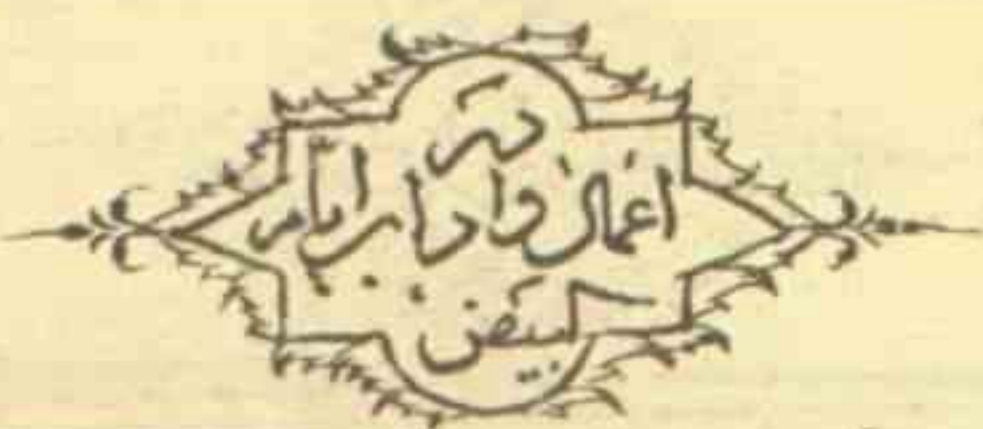 در
اعمال وآداب ایام
بیض